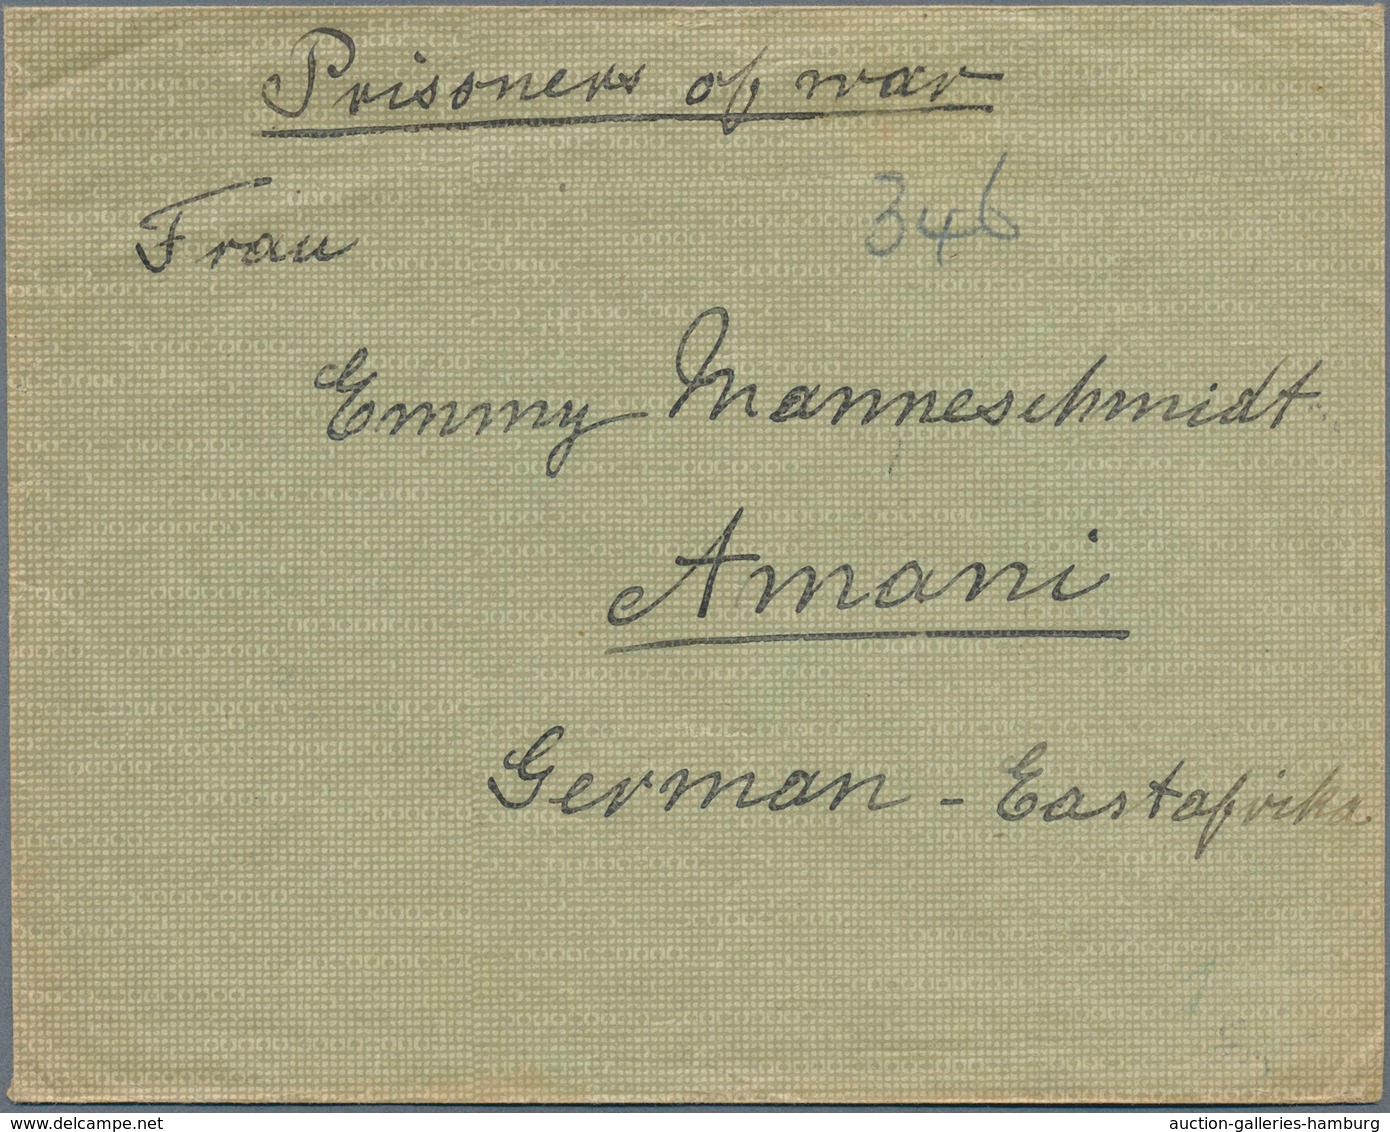 Prisoners of war
Frau
346
Emmy Manneschmidt
Amani
German - Eastafrika
www.delcampe.net
auction-galleries-hamburg